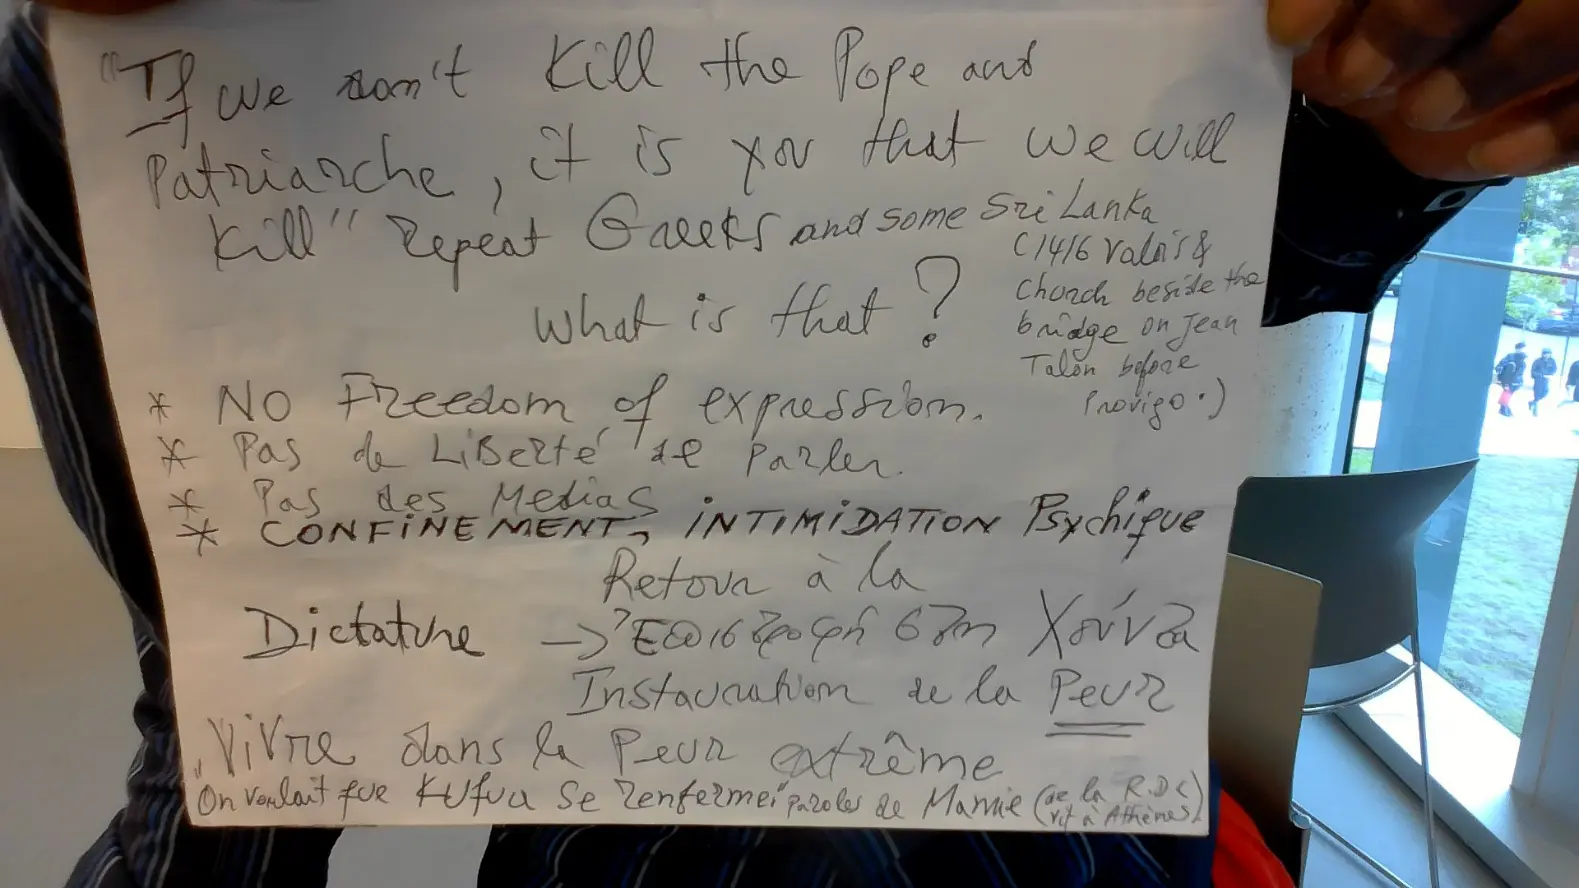 "If we don't Kill the Pope and
Patriarche, it is you that we will
Kill" repeat Greeks and some Sri Lanka
(1416 Valois &
Church beside the
bridge on Jean
Talon before
Provigo.)
What is that ?
* NO Freedom of expression.
* Pas de Liberté de parler.
* Pas des Medias
* CONFINEMENT, INTIMIDATION Psychique
Retour à la
Dictature → Ἐπιστροφή στη Χούντα
Instauration de la Peur
"Vivre dans la Peur extrême
On voulait que Kufua se renferme" paroles de Mamie (de la R.D.C)
vit à Athènes)